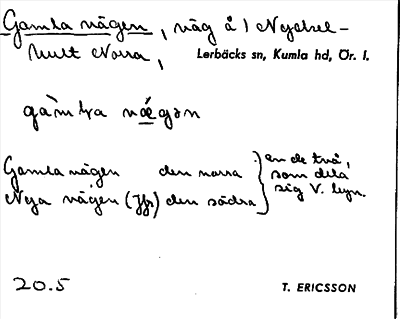 Gamla vägen, väg å 1 Nyckel-
hult Norra, Lerbäcks sn, Kumla hd, Ör. l.
gàmḷa vǽgən
Gamla vägen den norra } en de två,
Nya vägen (Jfr) den södra } som dela
sig V. byn.
20.5 T. ERICSSON